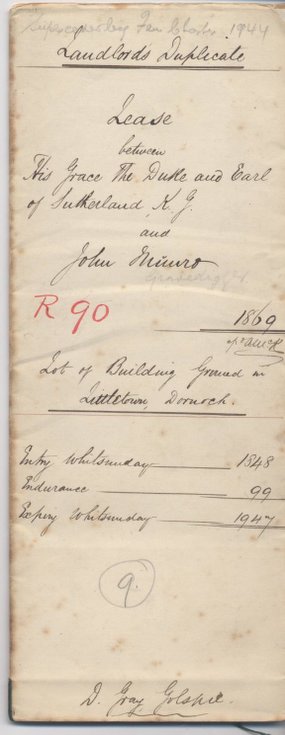 Superceded by Feu Charter 1944
Landlords Duplicate
Lease
between
His Grace The Duke and Earl
of Sutherland K. G.
and
John Munro
R 90
1869
Lot of Building Ground in
Littletown, Dornoch.
Entry Whitsunday 1848
Endurance 99
Expiry Whitsunday 1947
9.
D. Gray Golspie.